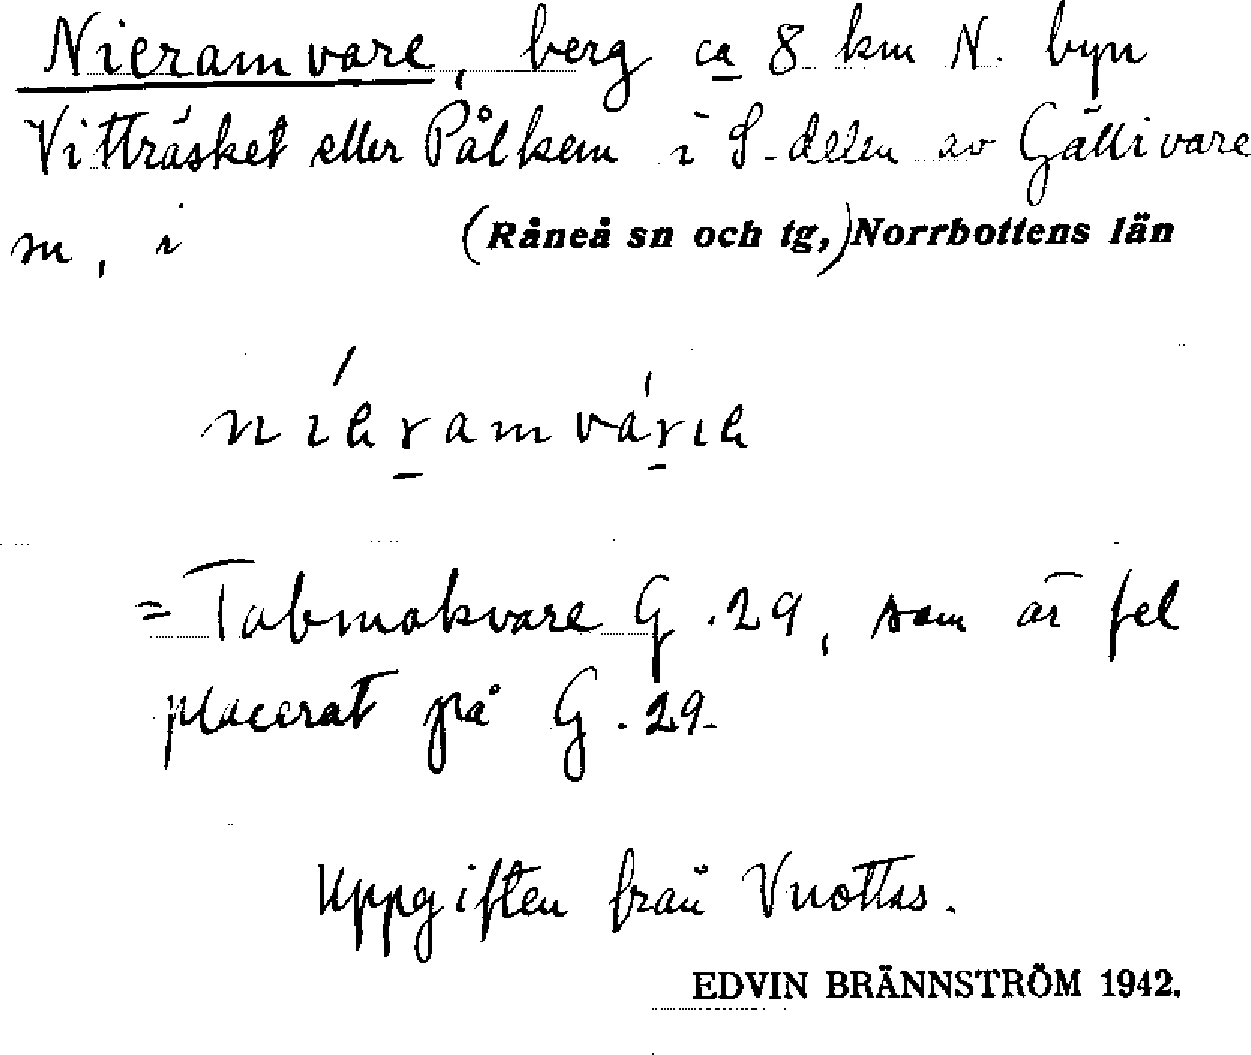 Nieramvare, berg ca 8 km N. byn
Vitträsket eller Pålkem i S. delen av Gällivare
sn, i (Råneå sn och tg,) Norrbottens län
= Tabmokvare G. 29, som är fel
placerat på G. 29.
Uppgiften från Vuottas.
EDVIN BRÄNNSTRÖM 1942.